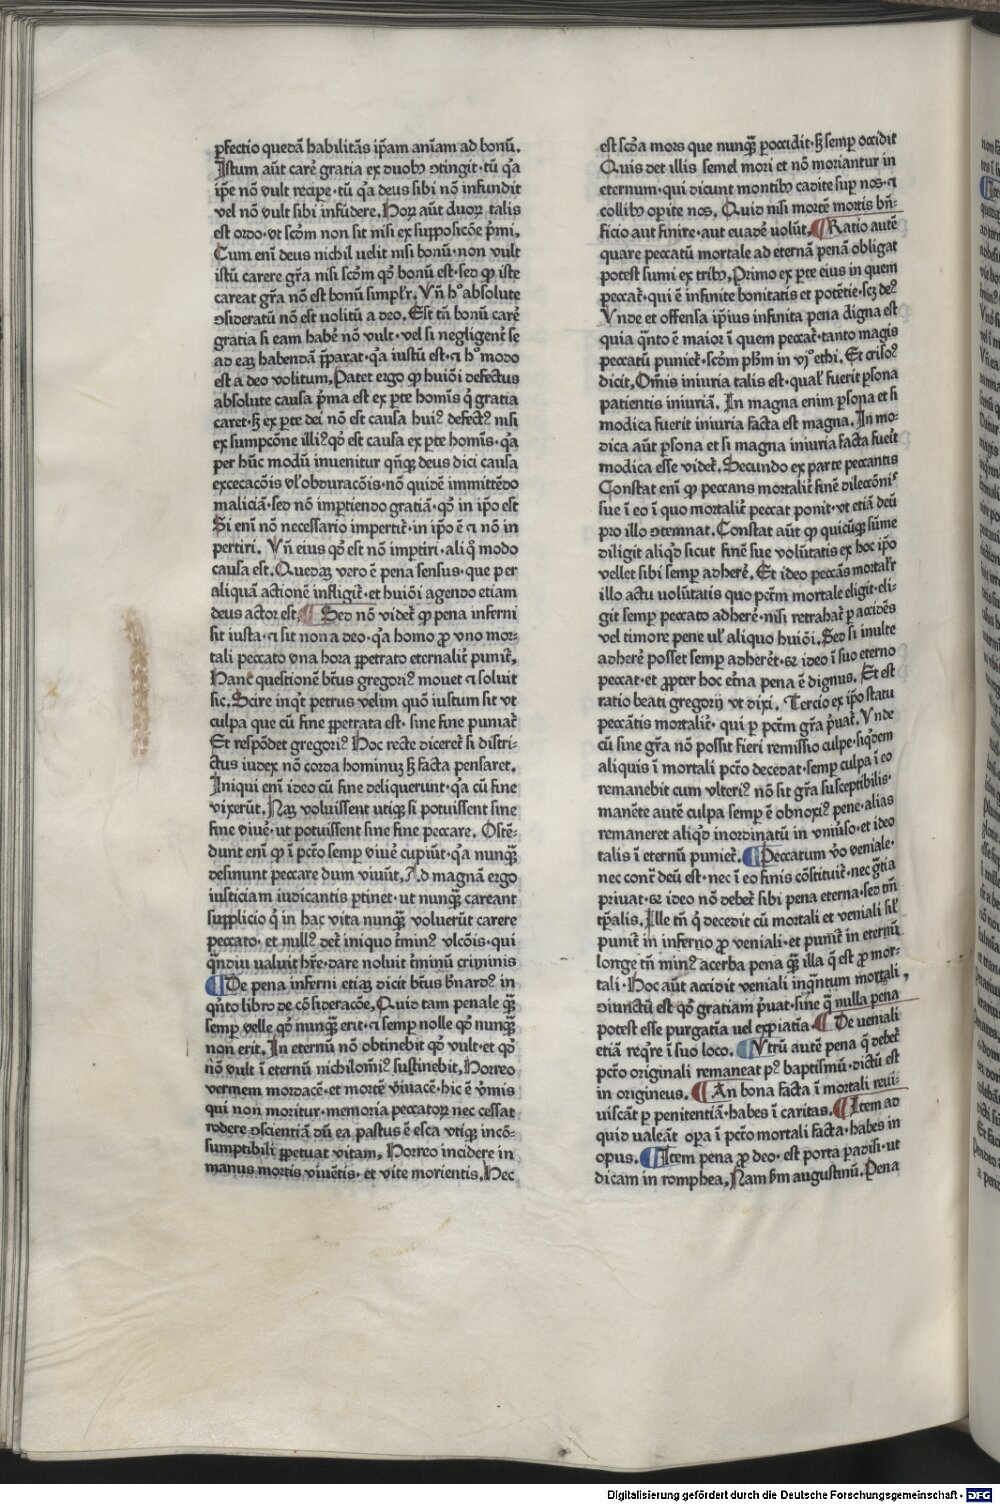 ꝑfectio quedã habilitãs ip̃am animã ad bonũ.
Istum aũt carẽ gratia ex duobꝰ ↄtingit·tũ qꝛa
ip̃e nõ vult recipẽ·tũ qꝛa deus sibi nõ infundit
vel nõ vult sibi infũdere. Hoꝝ aũt duoꝝ talis
est ordo·vt scḋm non sit nisi ex supposicõe p̃mi.
Cum eni deus nichil uelit nisi bonũ·non vult
istũ carere grã nisi scḋm qꝙ bonũ est·sed ꝙ iste
careat grã nõ est bonũ simplr̃. Vñ hꝰ absolute
ↄsideratũ nõ est uolitũ a deo. Est tñ bonũ carẽ
gratia si eam habẽ nõ vult·vel si negligent̃ se
ad eaꝫ habendã p̃parat·qꝛa iustũ est·⁊ hꝰ modo
est a deo volitum. Patet ergo ꝙ huiõi defectus
absolute causa p̃ma est ex ꝑte homis q̃ gratia
caret·sꝫ ex ꝑte dei nõ est causa huiꝰ defectꝰ nisi
ex sumpcõne illiꝰ qꝙ est causa ex ꝑte homis·qꝛa
per hũc modũ inuenitur qñqꝫ deus dici causa
excecacõis vl̃ obduracõis·nõ quidẽ immittẽdo
maliciã·sed nõ imꝑtiendo gratiã·qꝙ in ip̃o est
Si eni nõ necessario impertit̃·in ip̃o ẽ ⁊ nõ in
pertiri. Vñ eius qꝙ est nõ imꝑtiri·aliq̃ modo
causa est. Quedaꝫ vero ẽ pena sensus·que per
aliquã actionẽ infligit̃·et huiõi agendo etiam
deus actor est. ¶ Sed nõ videt̃ ꝙ pena inferni
sit iusta·⁊ sit non a deo·qꝛa homo ꝓ vno mor⸗
tali peccato vna hora ꝑpetrato eternalit̃ punit̃.
Hanc questionẽ bt̃us gregoriꝰ mouet ⁊ soluit
sic. Scire inqͥt petrus velim quõ iustum sit vt
culpa que cũ fine ꝑpetrata est·sine fine puniat̃
Et respõdet gregoriꝰ Hoc recte diceret̃ si distri⸗
ctus iudex nõ corda hominuꝫ sꝫ facta pensaret.
Iniqui eni ideo cũ fine deliquerunt·qꝛa cũ fine
vixerũt. Naꝫ voluissent utiqꝫ si potuissent sine
fine viuẽ·ut potuissent sine fine peccare. Ostẽ⸗
dunt eni ꝙ ĩ pctõ semꝑ viuẽ cupiũt·qꝛa nunqꝫ̃
desinunt peccare dum viuũt. Ad magnã ergo
iusticiam iudicantis ꝑtinet·ut nunqꝫ̃ careant
supplicio qͥ in hac vita nunqꝫ̃ voluerũt carere
peccato·et nullꝰ det̃ iniquo t̃minꝰ vlcõis·qui
qꝫ̃ndiu ualuit hr̃e·dare noluit t̃minũ criminis
¶ De pena inferni etiaꝫ dicit bt̃us bñardꝰ in
qͥnto libro de cõsideracõe. Quid tam penale qꝫ̃
semꝑ velle qꝙ nunqꝫ̃ erit·⁊ semꝑ nolle qꝙ nunqꝫ̃
non erit. In eternũ nõ obtinebit qꝙ vult·et qꝙ
nõ vult ĩ eternũ nichilomĩꝰ sustinebit. Horreo
vermem mordacẽ·et mortẽ viuacẽ·hic ẽ v̾mis
qui non moritur·memoria peccatoꝝ nec cessat
rodere ↄscientiã dũ ea pastus ẽ esca vtiqꝫ incõ⸗
sumptibili ꝑpetuat vitam. Horreo incidere in
manus mortis viuẽtis·et vite morientis. Hec
est scḋa mors que nunqꝫ̃ ꝑoccidit·sꝫ semꝑ occidit
Quis det illis semel mori et nõ moriantur in
eternum·qui dicunt montibꝰ cadite suꝑ nos·⁊
collibꝰ oꝑite nos. Quid nisi mortẽ mortis bñ⸗
ficio aut finire·aut euadẽ uolũt. ¶ Ratio autẽ
quare peccatũ mortale ad eternã penã obligat
potest sumi ex tribꝰ. Primo ex ꝑte eius in quem
peccat̃·qui ẽ infinite bonitatis et potẽtie·scꝫ deꝰ
Vnde et offensa ip̃ius infinita pena digna est
quia qͣnto ẽ maior ĩ quem peccat̃·tanto magis
peccatũ puniet̃·scḋm phm in vj° ethi. Et crisoꝰ
dicit. Om̃is iniuria talis est·qual̃ fuerit ꝑsona
patientis iniuriã. In magna enim ꝑsona et si
modica fuerit iniuria facta est magna. In mo⸗
dica aũt ꝑsona et si magna iniuria facta fuerit
modica esse videt̃. Secundo ex parte peccantis
Constat eni ꝙ peccans mortalit̃ finẽ dilecc̃oniˢ
sue ĩ eo ĩ quo mortalit̃ peccat ponit·vt etiã deũ
pro illo ↄtemnat. Constat aũt ꝙ quicũqꝫ sũme
diligit aliqͥd sicut finẽ sue volũtatis ex hoc ip̃o
vellet sibi semꝑ adherẽ. Et ideo peccãs mortalr̃
illo actu uolũtatis quo pctm̃ mortale eligit·eli⸗
git semꝑ peccato adherẽ·nisi retrahat̃ ꝑ accidẽs
vel timore pene ul̃ aliquo huiõi. Sed si inulte
adherẽ posset semꝑ adheret̃·& ideo ĩ suo eterno
peccat·et ꝓpter hoc et̃na pena ẽ dignus. Et est
ratio beati gregorij vt dixi. Tercio ex ip̃o statu
peccãtis mortalit̃·qui ꝑ pctm̃ grã p̃uat̃. Vnde
cũ sine grã nõ possit fieri remissio culpe·siqͥdem
aliquis ĩ mortali pctõ decedat·semꝑ culpa ĩ eo
remanebit cum vlteriꝰ nõ sit grã susceptibilis·
manẽte autẽ culpa semꝑ ẽ obnoxiꝰ pene·alias
remaneret aliqͥd inordinatũ in vniũso·et ideo
talis ĩ eternũ puniet̃. ¶ Peccatum v̾o veniale·
nec cont̃ deũ est·nec ĩ eo finis cõstituit̃·nec g̃tia
priuat·& ideo nõ debet̃ sibi pena eterna·sed tm̃
tp̃alis. Ille tñ qͥ decedit cũ mortali et veniali sil̃
punit̃ in inferno ꝓ veniali·et punit̃ in eternũ
longe tñ minꝰ acerba pena qꝫ̃ illa q̃ est ꝓ mor⸗
tali·Hoc aũt accidit veniali inqͣntum mortali
ↄiunctũ est qꝙ gratiam p̃uat·sine q̃ nulla pena
potest esse purgatĩa uel expiatĩa. ¶ De ueniali
etiã reqͥre ĩ suo loco. ¶ Vtrũ autẽ pena q̃ debet̃
pctõ originali remaneat pꝰ baptismũ·dictũ est
in origineus. ¶ An bona facta ĩ mortali reui⸗
uiscãt ꝑ penitentiã·habes ĩ caritas. ¶ Item ad
quid ualeãt oꝑa ĩ pctõ mortali facta·habes in
opus. ¶ Item pena ꝓ deo·est porta ꝑadisi·ut
dicam in romphea. Nam bm̃ augustinũ. Pena
Digitalisierung gefördert durch die Deutsche Forschungsgemeinschaft - DFG